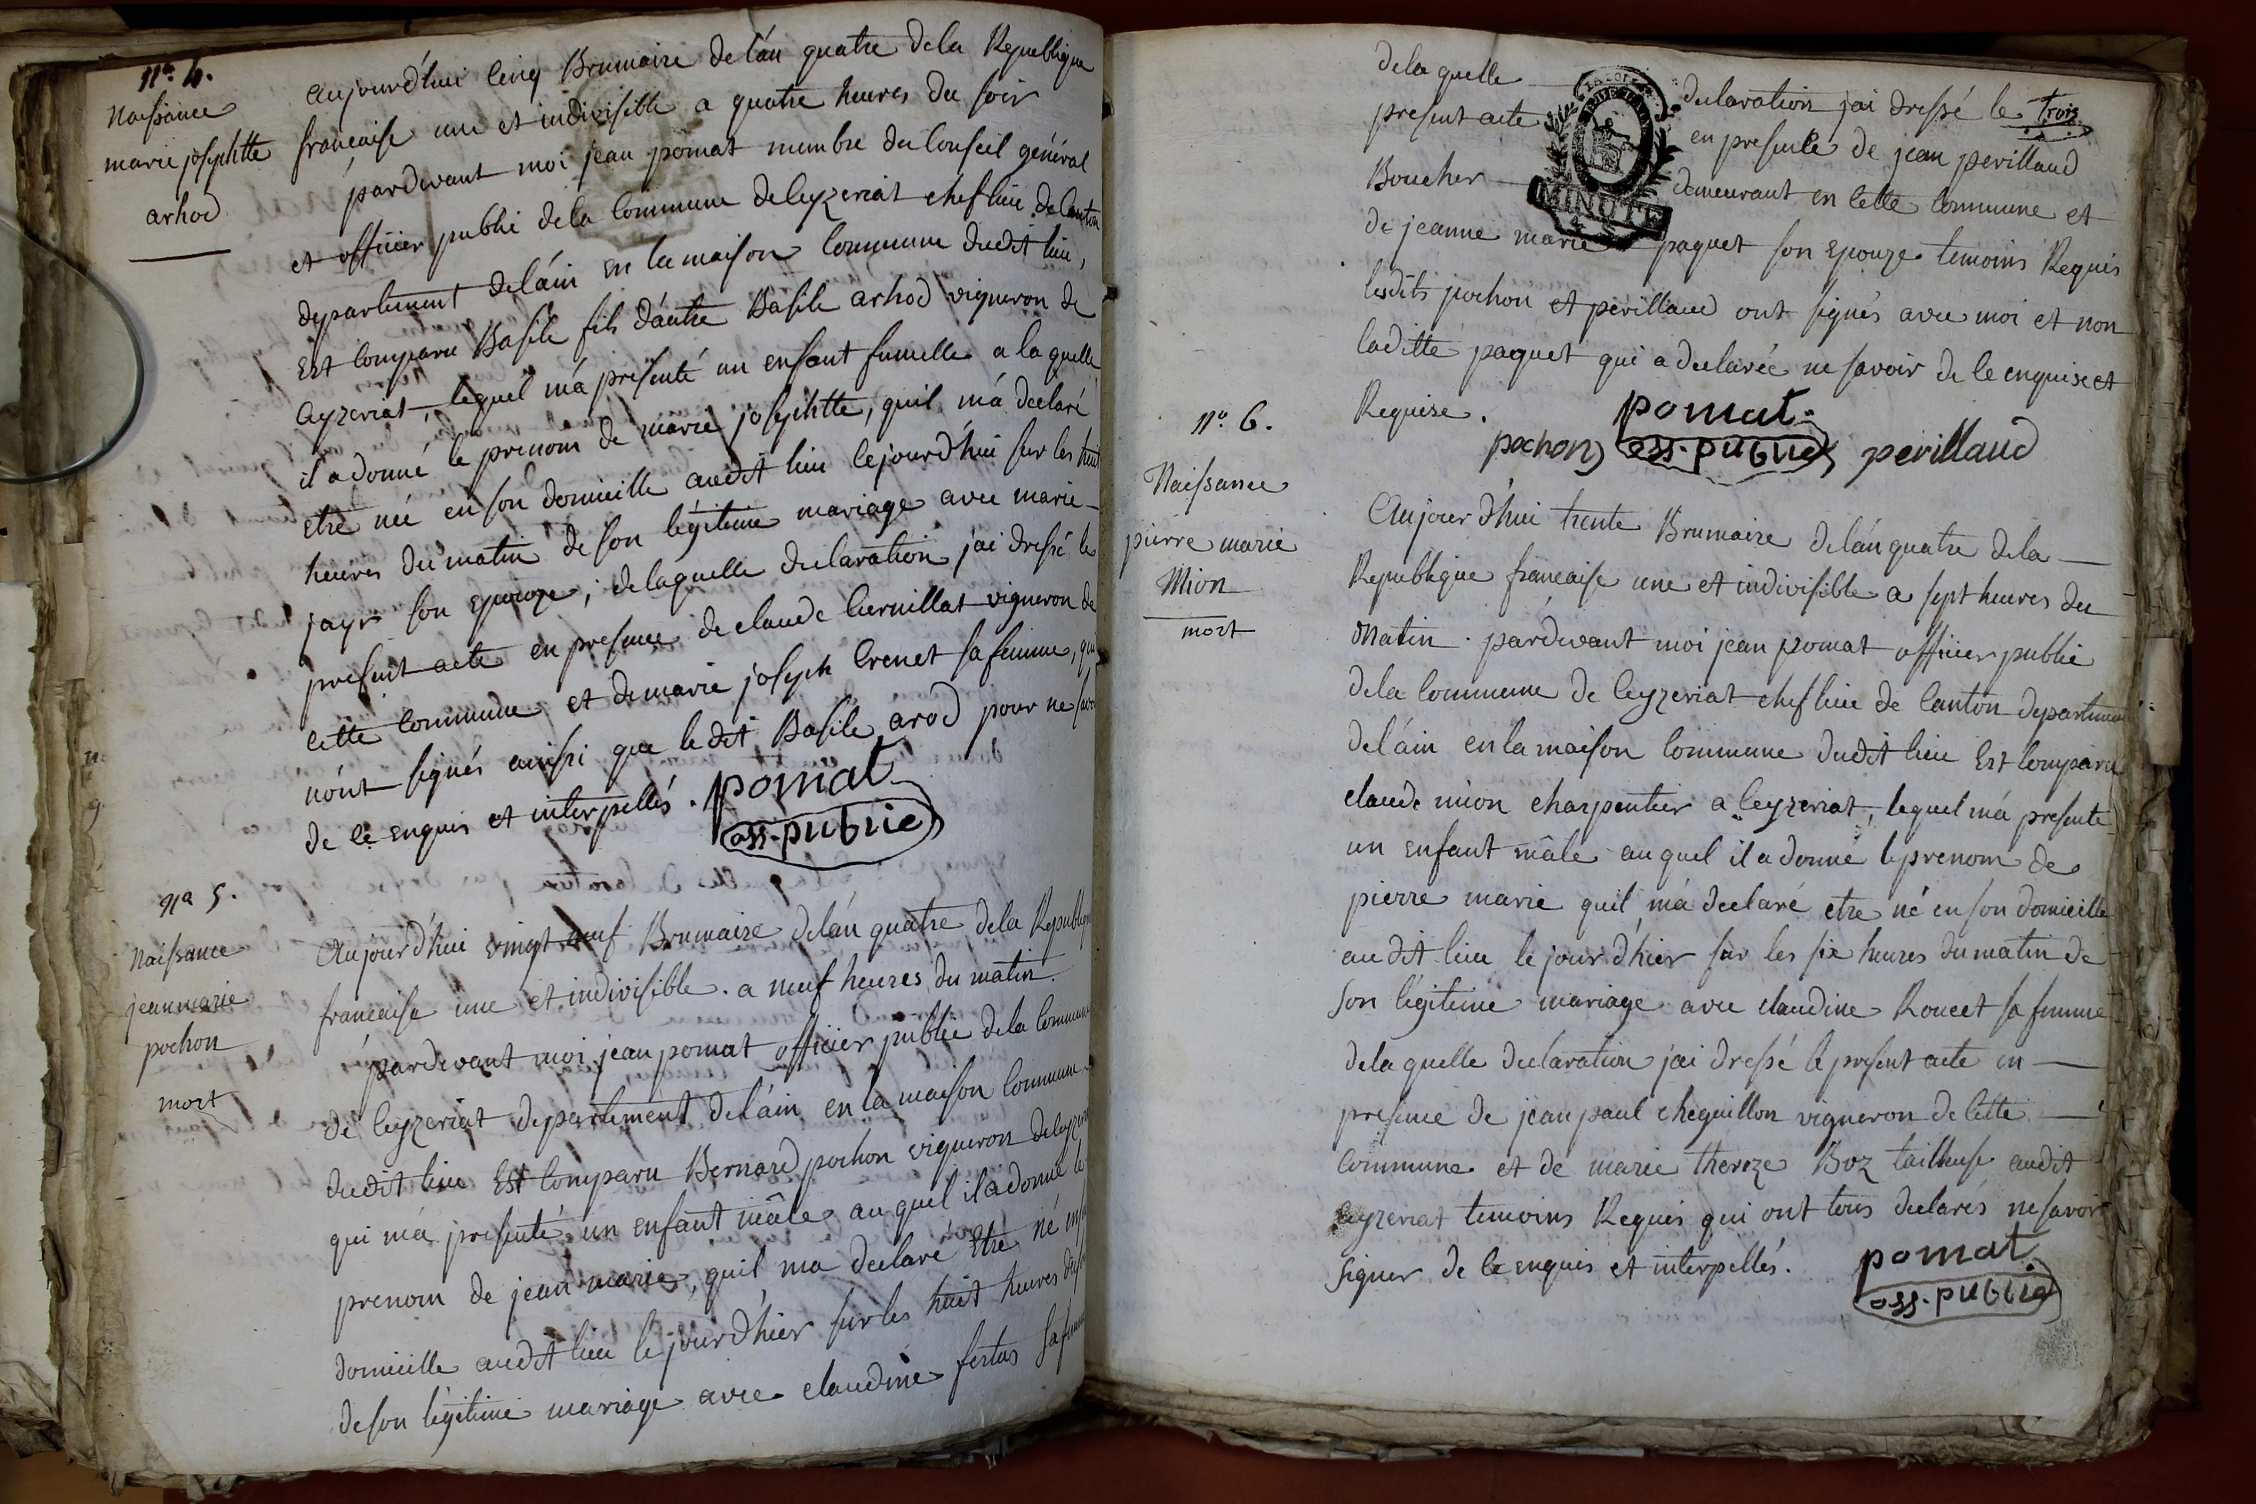 nº. 4.
Naissance
marie josephtte
arhod
aujourd'hui cinq Brumaire de l'an quatre de la Republique
francaise une et indivisible a quatre heures du soir
pardevant moi jean pomat membre du Conseil général
et officier public de la Commune de Ceyzeriat chef lieu de Canton
departement de l'ain en la maison Commune dudit lieu,
Est Comparu Basile fils d'autre Basile arhod vigneron de
Ceyzeriat, lequel m'a presenté un enfant fumelle a la quelle
il a donné le prenom de marie josephtte, qu'il m'a declaré
etre née en son domicille audit lieu cejourd'hui sur les huit
heures du matin de son légitime mariage avec marie
jayr son epouze, de laquelle declaration j'ai dressé le
present acte en presence de claude Curuillat vigneron de
cette Commune et de marie joseph Crenet sa femme, qui
n'ont signés ainssi que ledit Basile arod pour ne savoir
de ce enquis et interpellés.
pomat
off. public
nº 5.
Naissance
jean marie
pochon
mort
Aujourd'hui vingt neuf Brumaire de l'an quatre de la Republique
francaise une et indivisible. a neuf heures du matin.
pardevant moi jean pomat officier public de la Commune
de Ceyzeriat departement de l'ain en la maison Commune
dudit lieu Est Comparu Bernard pochon vigneron de Ceyzeriat
qui m'a presenté un enfant mâle au quel il a donné le
prenom de jean marie, qu'il ma declaré Etre né en son
domicille audit lieu le jour d'hier sur les huit heures du soir
de son légitime mariage avec claudine fertas sa femme
de la quelle declaration j'ai dressé le trois
present acte en presence de jean perillaud
Boucher demeurant en Cette Commune et
de jeanne marie paquet son Epouze temoins Requis
lesdits pochon et perillaud ont signés avec moi et non
laditte paquet qui a declarée ne savoir de ce enquise et
Requise.
pomat.
pochon off. public perillaud
MINUTE
nº. 6.
Naissance
pierre marie
Mion
mort
Aujourd'hui trente Brumaire de l'an quatre de la
Republique francaise une et indivisible a sept heures du
Matin. pardevant moi jean pomat officier public
de la Commune de Ceyzeriat chef lieu de Canton departement
de l'ain en la maison Commune dudit lieu Est Comparu
claude mion charpentier a Ceyzeriat, lequel m'a presenté
un Enfant mâle au quel il a donné le prenom de
pierre marie qu'il m'a declaré etre né en son domicille
audit lieu le jour d'hier sur les six heures du matin de
son légitime mariage avec claudine Roucet sa femme
de la quelle declaration j'ai dressé le present acte en
presence de jean paul cheguillon vigneron de Cette
Commune et de marie thereze Boz tailleuse audit
Ceyzeriat temoins Requis qui ont tous declarés ne savoir
signer de ce enquis et interpellés.
pomat.
off. public